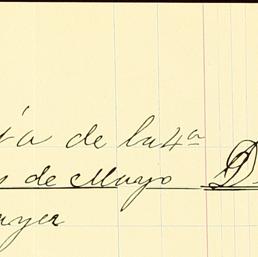 ia de la 4ª
s de Mayo D
ayer